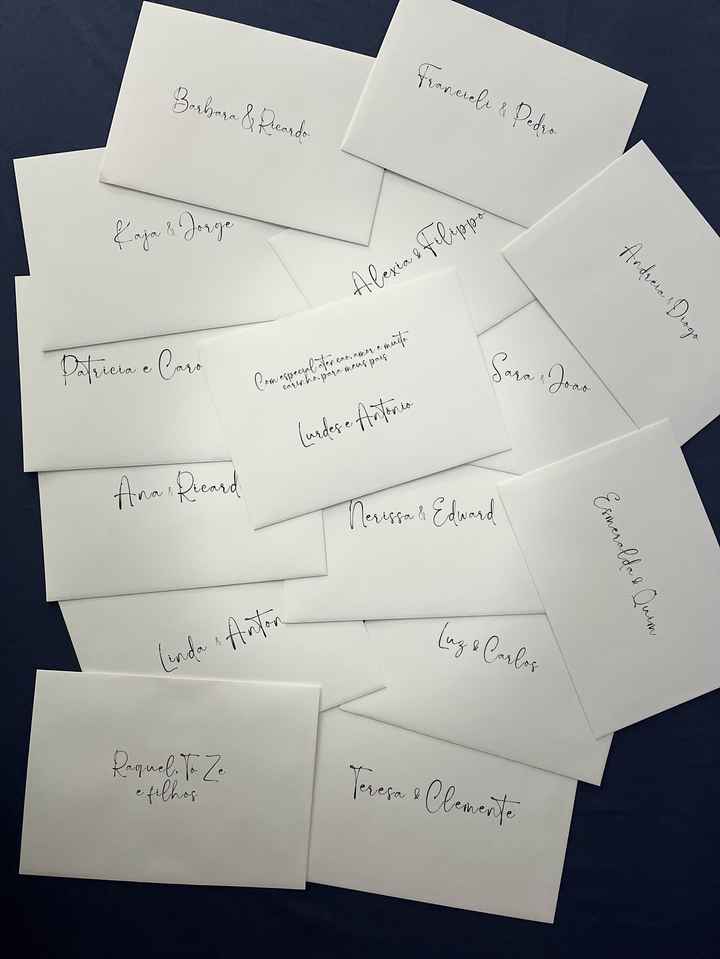 Barbara & Ricardo
Francieli & Pedro
Kaja & Jorge
Alexia & Filippo
Andreia & Diogo
Patricia e Caro
Com especial atencao, amor e muito
carinho, para meus pais
Lurdes e Antonio
Sara & Joao
Ana & Ricard
Nerissa & Edward
Esmeralda & Quim
Linda & Anton
Luz & Carlos
Raquel, To Ze
e filhos
Teresa & Clemente